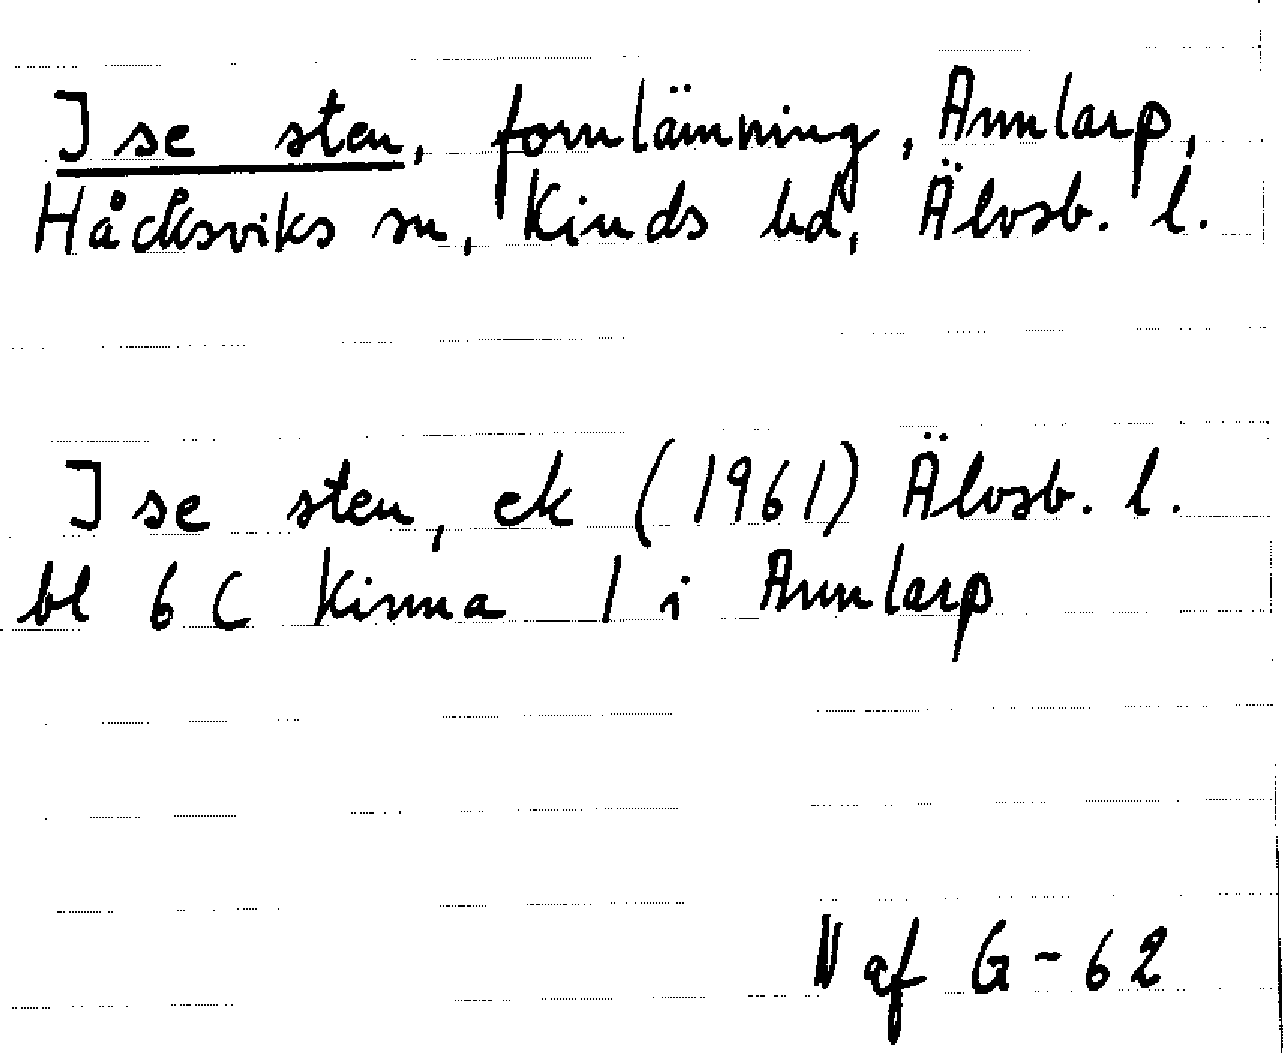 Ise sten, fornlämning, Annlarp,
Håcksviks sn, Kinds hd, Älvsb. l.
Ise sten, ek (1961) Älvsb. l.
bl 6 C Kinna 1 i Annlarp
N af G-62